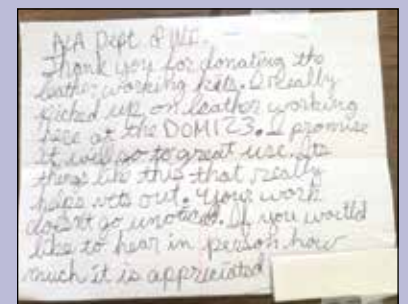 ALA Dept. of WI.
Thank you for donating the
leather working kits. I really
picked up on leather working
here at the DOM 123. I promise
it will go to great use. Its
things like this that really
helps vets out. Your work
doesn't go unoticed. If you would
like to hear in person how
much it is appreciated